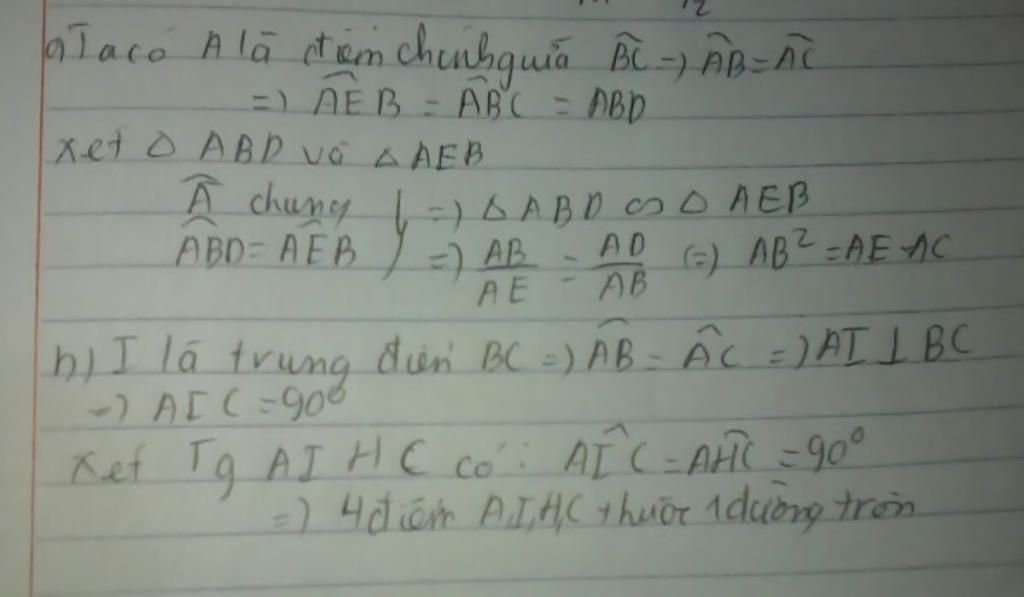 a) Ta có A là điểm chính giữa B͡C => A͡B = A͡C
=> \widehat{AEB} = \widehat{ABC} = ABD
xét △ ABD và △ AEB
\widehat{A} chung } => △ ABD ∽ △ AEB
\widehat{ABD} = \widehat{AEB} } => \frac{AB}{AE} = \frac{AD}{AB} (=) AB² = AE.AC
b) I là trung điểm BC => A͡B = A͡C => AI ⊥ BC
=> AIC = 90⁰
xét Tg AIHC có: \widehat{AIC} = \widehat{AHC} = 90⁰
=> 4 điểm A,I,H,C thuộc 1 đường tròn